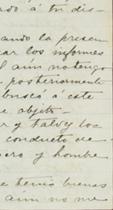 ado á tu dis-
ando la presen
car los informes
l aún no tengo
posteriormente
busco á éste
objeto
r y tal vez los
conducto de
ero y hombre
buenas
aún no me